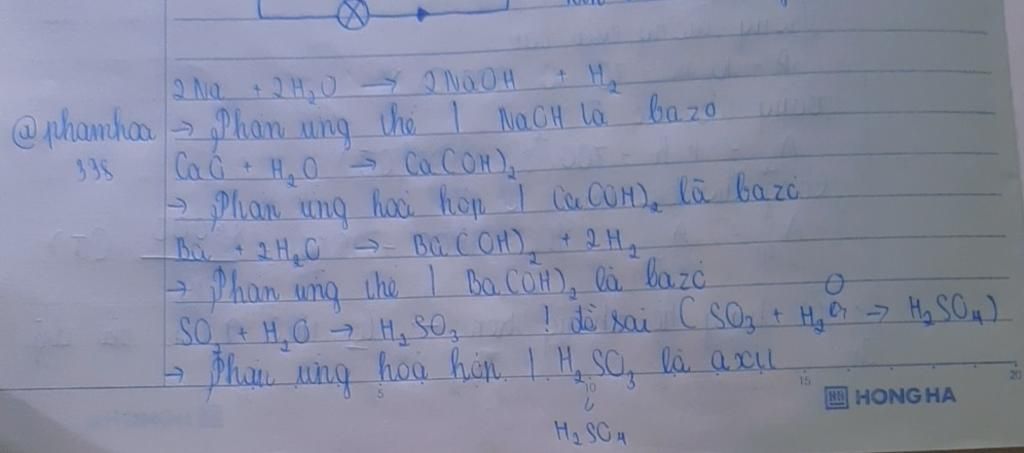 2Na + 2H₂O → 2NaOH + H₂
@phamhoa → Phản ứng thế | NaOH là bazơ
338 CaO + H₂O → Ca(OH)₂
→ Phản ứng hoá hợp | Ca(OH)₂ là bazơ
Ba + 2H₂O → Ba(OH)₂ + 2H₂
→ Phản ứng thế | Ba(OH)₂ là bazơ
O
SO₂ + H₂O → H₂SO₃ ! đề sai (SO₃ + H₂O → H₂SO₄)
→ Phản ứng hoá hợp | H₂SO₃ là axit
5 10 15 20
HONG HA
H₂SO₄